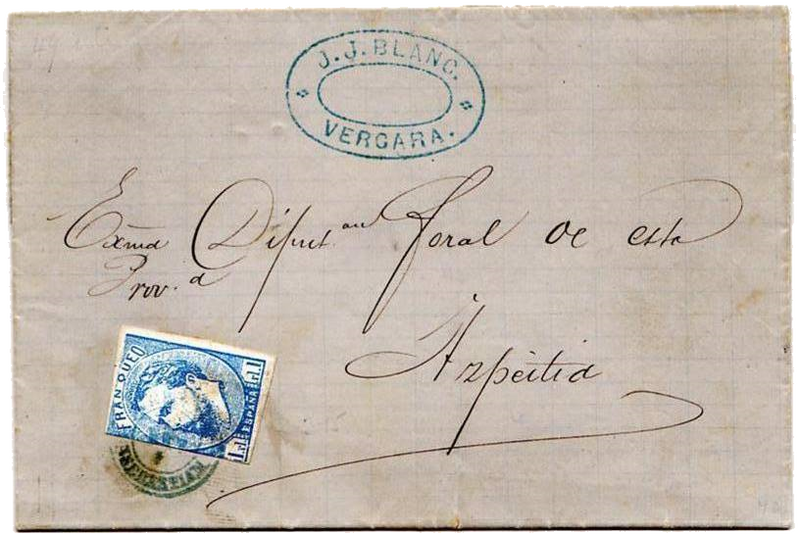 J. J. BLANC.
VERGARA.
Exma Diput.on Foral de esta
Prov.a
Azpeitia
FRANQUEO
ESPAÑA